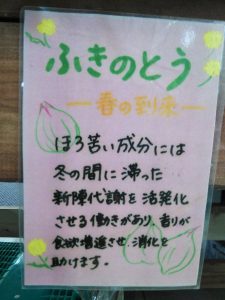 ふきのとう
ー春の到来ー
ほろ苦い成分には
冬の間に滞った
新陳代謝を活発化
させる働きがあり、香りが
食欲増進させ、消化を
助けます。